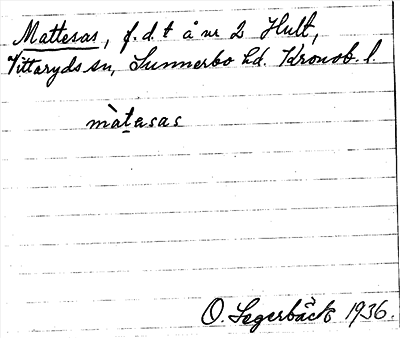 Mattesas, f.d.t å nr 2 Hult,
Vittaryds sn, Sunnerbo hd. Kronob. l.
màtasas
O. Segerbäck 1936.